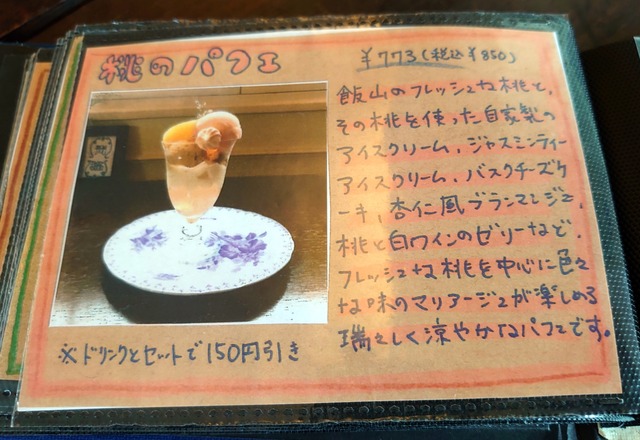 桃のパフェ
¥773(税込¥850)
飯山のフレッシュな桃と、
その桃を使った自家製の
アイスクリーム、ジャスミンティー
アイスクリーム、バスクチーズケ
ーキ、杏仁風ブランマンジェ、
桃と白ワインのゼリーなど、
フレッシュな桃を中心に色々
な味のマリアージュが楽しめる
瑞々しく涼やかなパフェです。
※ドリンクとセットで150円引き